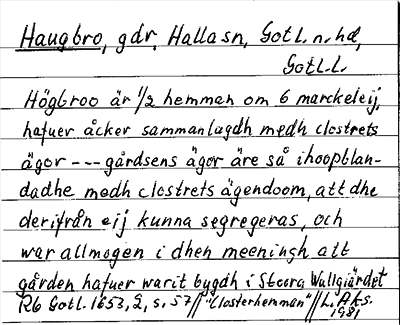 Haugbro, gdr, Halla sn, Gotl. n. hd,
Gotl. L.
Högbroo är 1/2 hemman om 6 marckeleij,
hafuer åcker sammanlagdh medh clostrets
ägor --- gårdsens ägor äre så ihoopblan-
dadhe medh clostrets ägendoom, att dhe
derifrån eij kunna segregeras, och
war allmogen i dhen meeningh att
gården hafuer warit bygdh i Stoora Wallgiärdet
Rb Gotl. 1653, 2, s. 57 // "Closterhemman" // L. A. ks.
1981